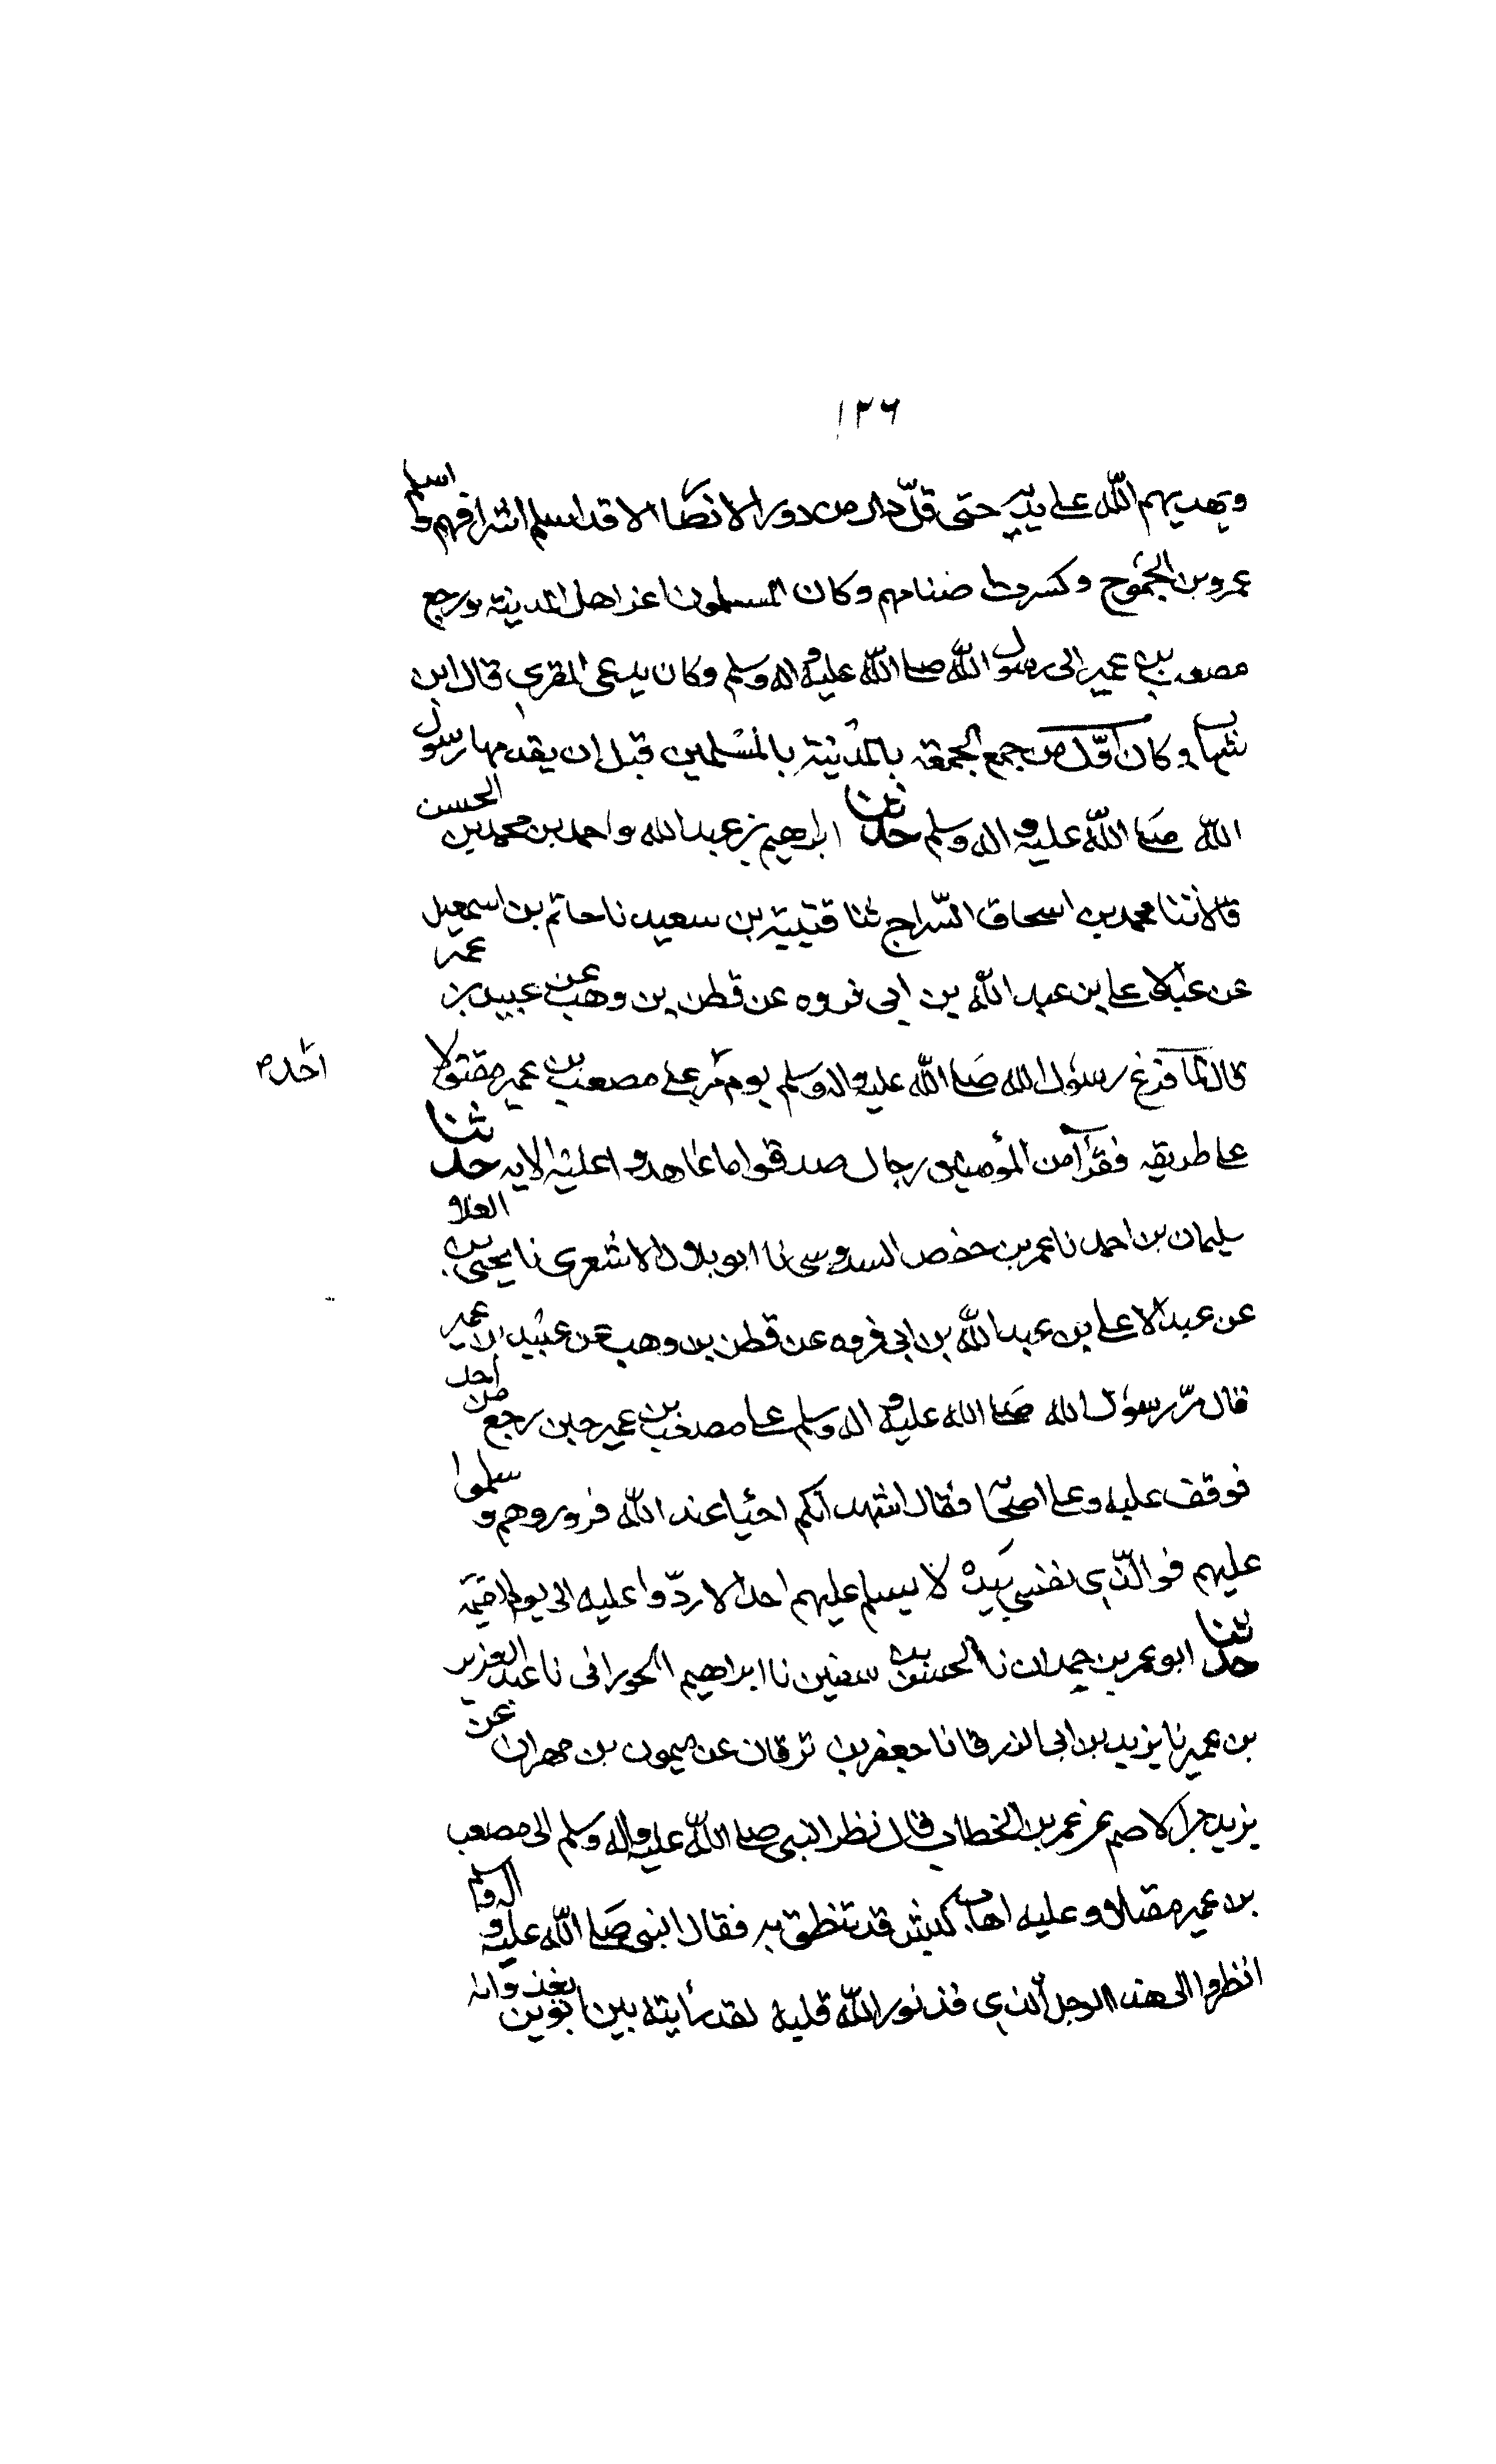 ١٢٦
ويهديهم الله على يديه حتى قلّ دار من دور الانصا الا قد اسلم اشرافهم واسلم
عمرو بن الجموح وكسرت اصنامهم وكان المسلمون اعز اهل المدينة ورجع
مصعب بن عمير الى رسول الله صلى الله عليه واله وسلم وكان يدعى المقرى قال ابن
شهاب وكان اوّل من جمع الجمعة بالمدينة بالمسلمين قبل ان يقدمها رسول
الله صلى الله عليه واله وسلم حدثنا ابراهيم بن عبد الله واحمد بن محمد بن الحسن
قالا ثنا محمد بن اسحاق السّراج ثنا قتيبة بن سعيد نا حاتم بن اسمعيل
عن عبد الاعلى بن عبد الله بن ابى فروه عن قطن بن وهب عن عبيد بن عمير
قال لما فرغ رسول الله صلى الله عليه واله وسلم يوم احد مر على مصعب بن عمير مقتولا
على طريقه فقرأ من المؤمنين رجال صدقوا ما عاهدوا عليه الايه حدثنا
سليمان بن احمد نا عمر بن حفص السدوسى نا ابو بلال الاشعرى نا يحيى بن العلا
عن عبد الاعلى بن عبد الله بن ابى فروه عن قطن بن وهب عن عبيد بن عمير
قال مرّ رسول الله صلى الله عليه واله وسلم على مصعب بن عمير حين رجع من احد
فوقف عليه وعلى اصحابه فقال اشهد انكم احيا عند الله فزوروهم وسلموا
عليهم فوالّذى نفسى بيده لا يسلم عليهم احد الا ردّوا عليه الى يوم القيمة
حدثنا ابو عمر بن حمدان نا الحسن بن سفين نا ابراهيم الحورانى نا عبد العزيز
بن عمير نا يزيد بن ابى الزرقا نا جعفر بن برقان عن ميمون بن مهران عن
يزيد بن الاصم عن عمر بن الخطاب قال نظر النبى صلى الله عليه واله وسلم الى مصعب
بن عمير مقبلا وعليه اهاب كبش قد تنطق به فقال النبى صلى الله عليه واله وسلم
انظروا الى هذا الرجل الذى قد نور الله قلبه لقد رأيته بين ابوين يغذوانه